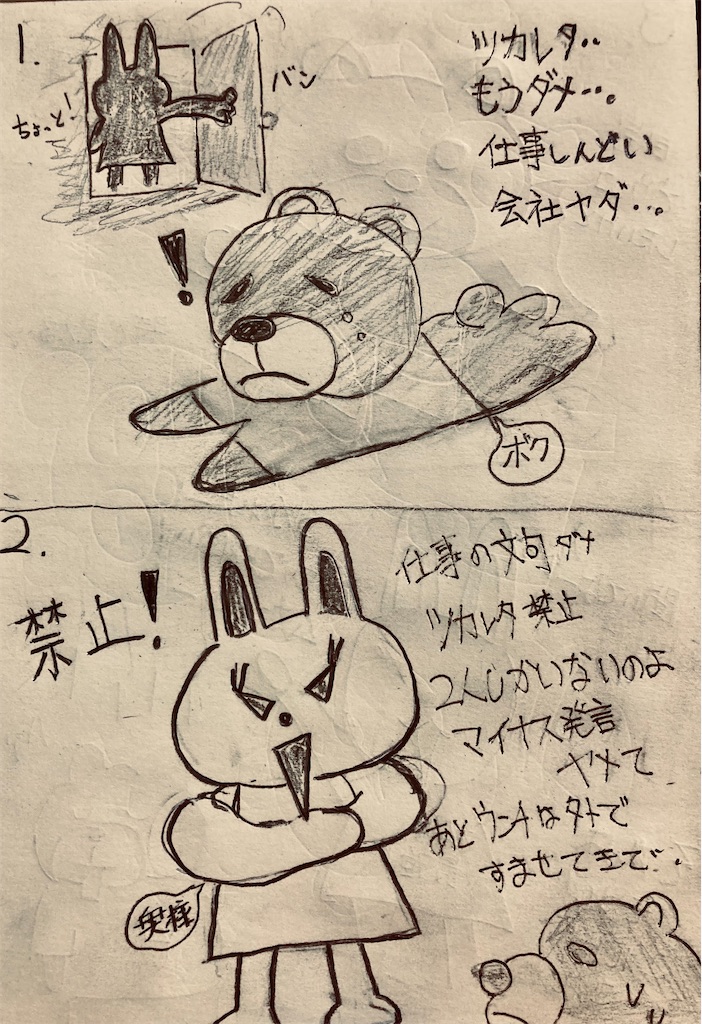 1.
ちょっと!
バン
ツカレタ..
もうダメ...。
仕事しんどい
会社ヤダ...
!
ボク
2.
禁止!
仕事の文句ダメ
ツカレタ禁止
2人しかいないのよ
マイナス発言
ヤメて
あとウンチは外で
すませてきて.
奥様